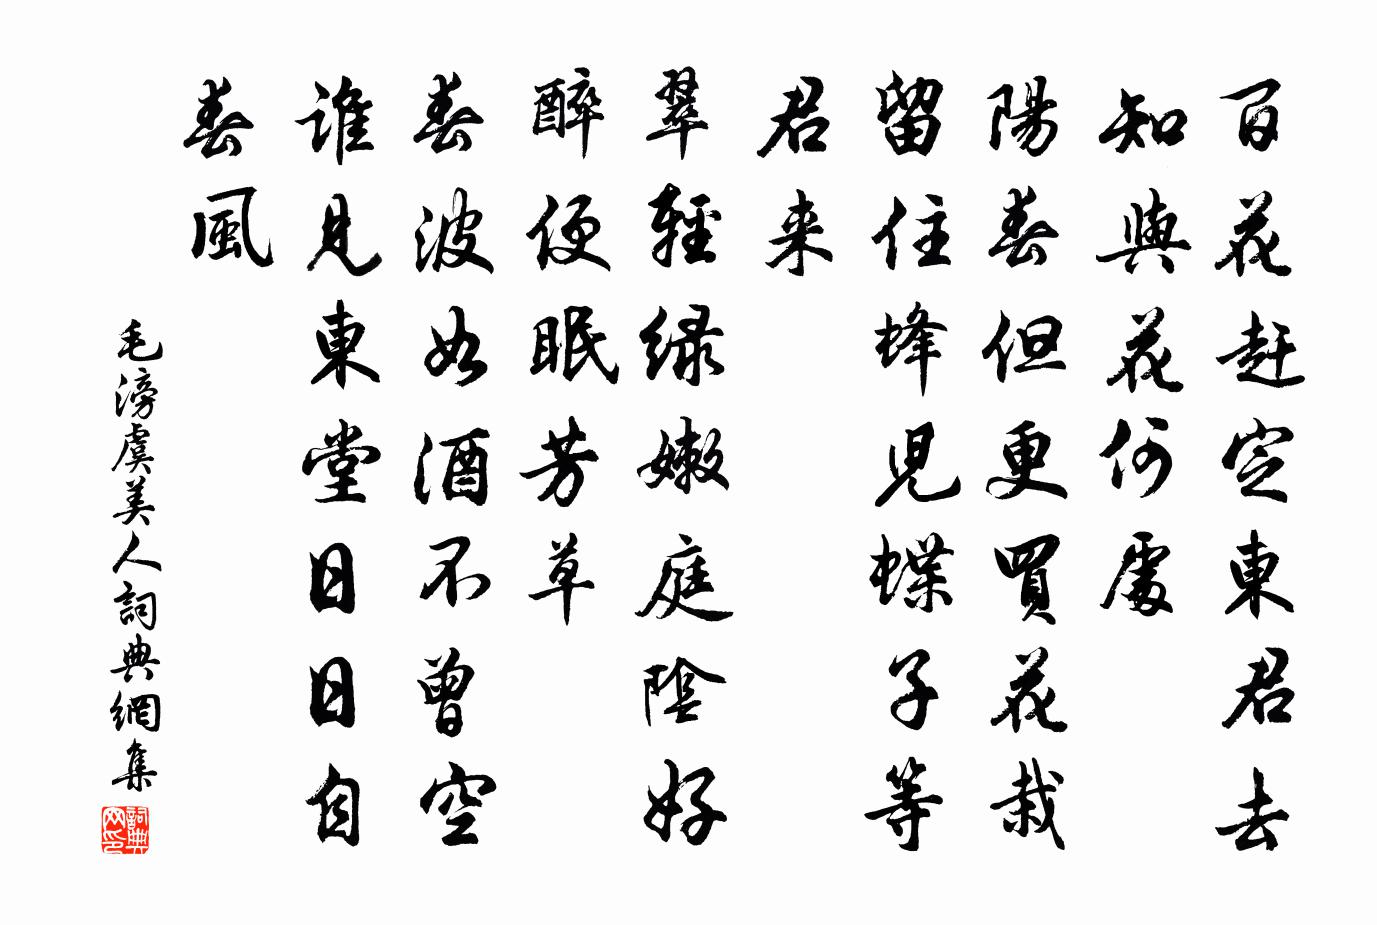 百花赶定東君去
知與花何處
陽春但更買花栽
留住蜂児蝶子等
君来
翠軽緑嫩庭陰好
醉便眠芳草
春波如酒不曾空
誰見東堂日日自
春風
毛滂虞美人詞典網集
詞典網印